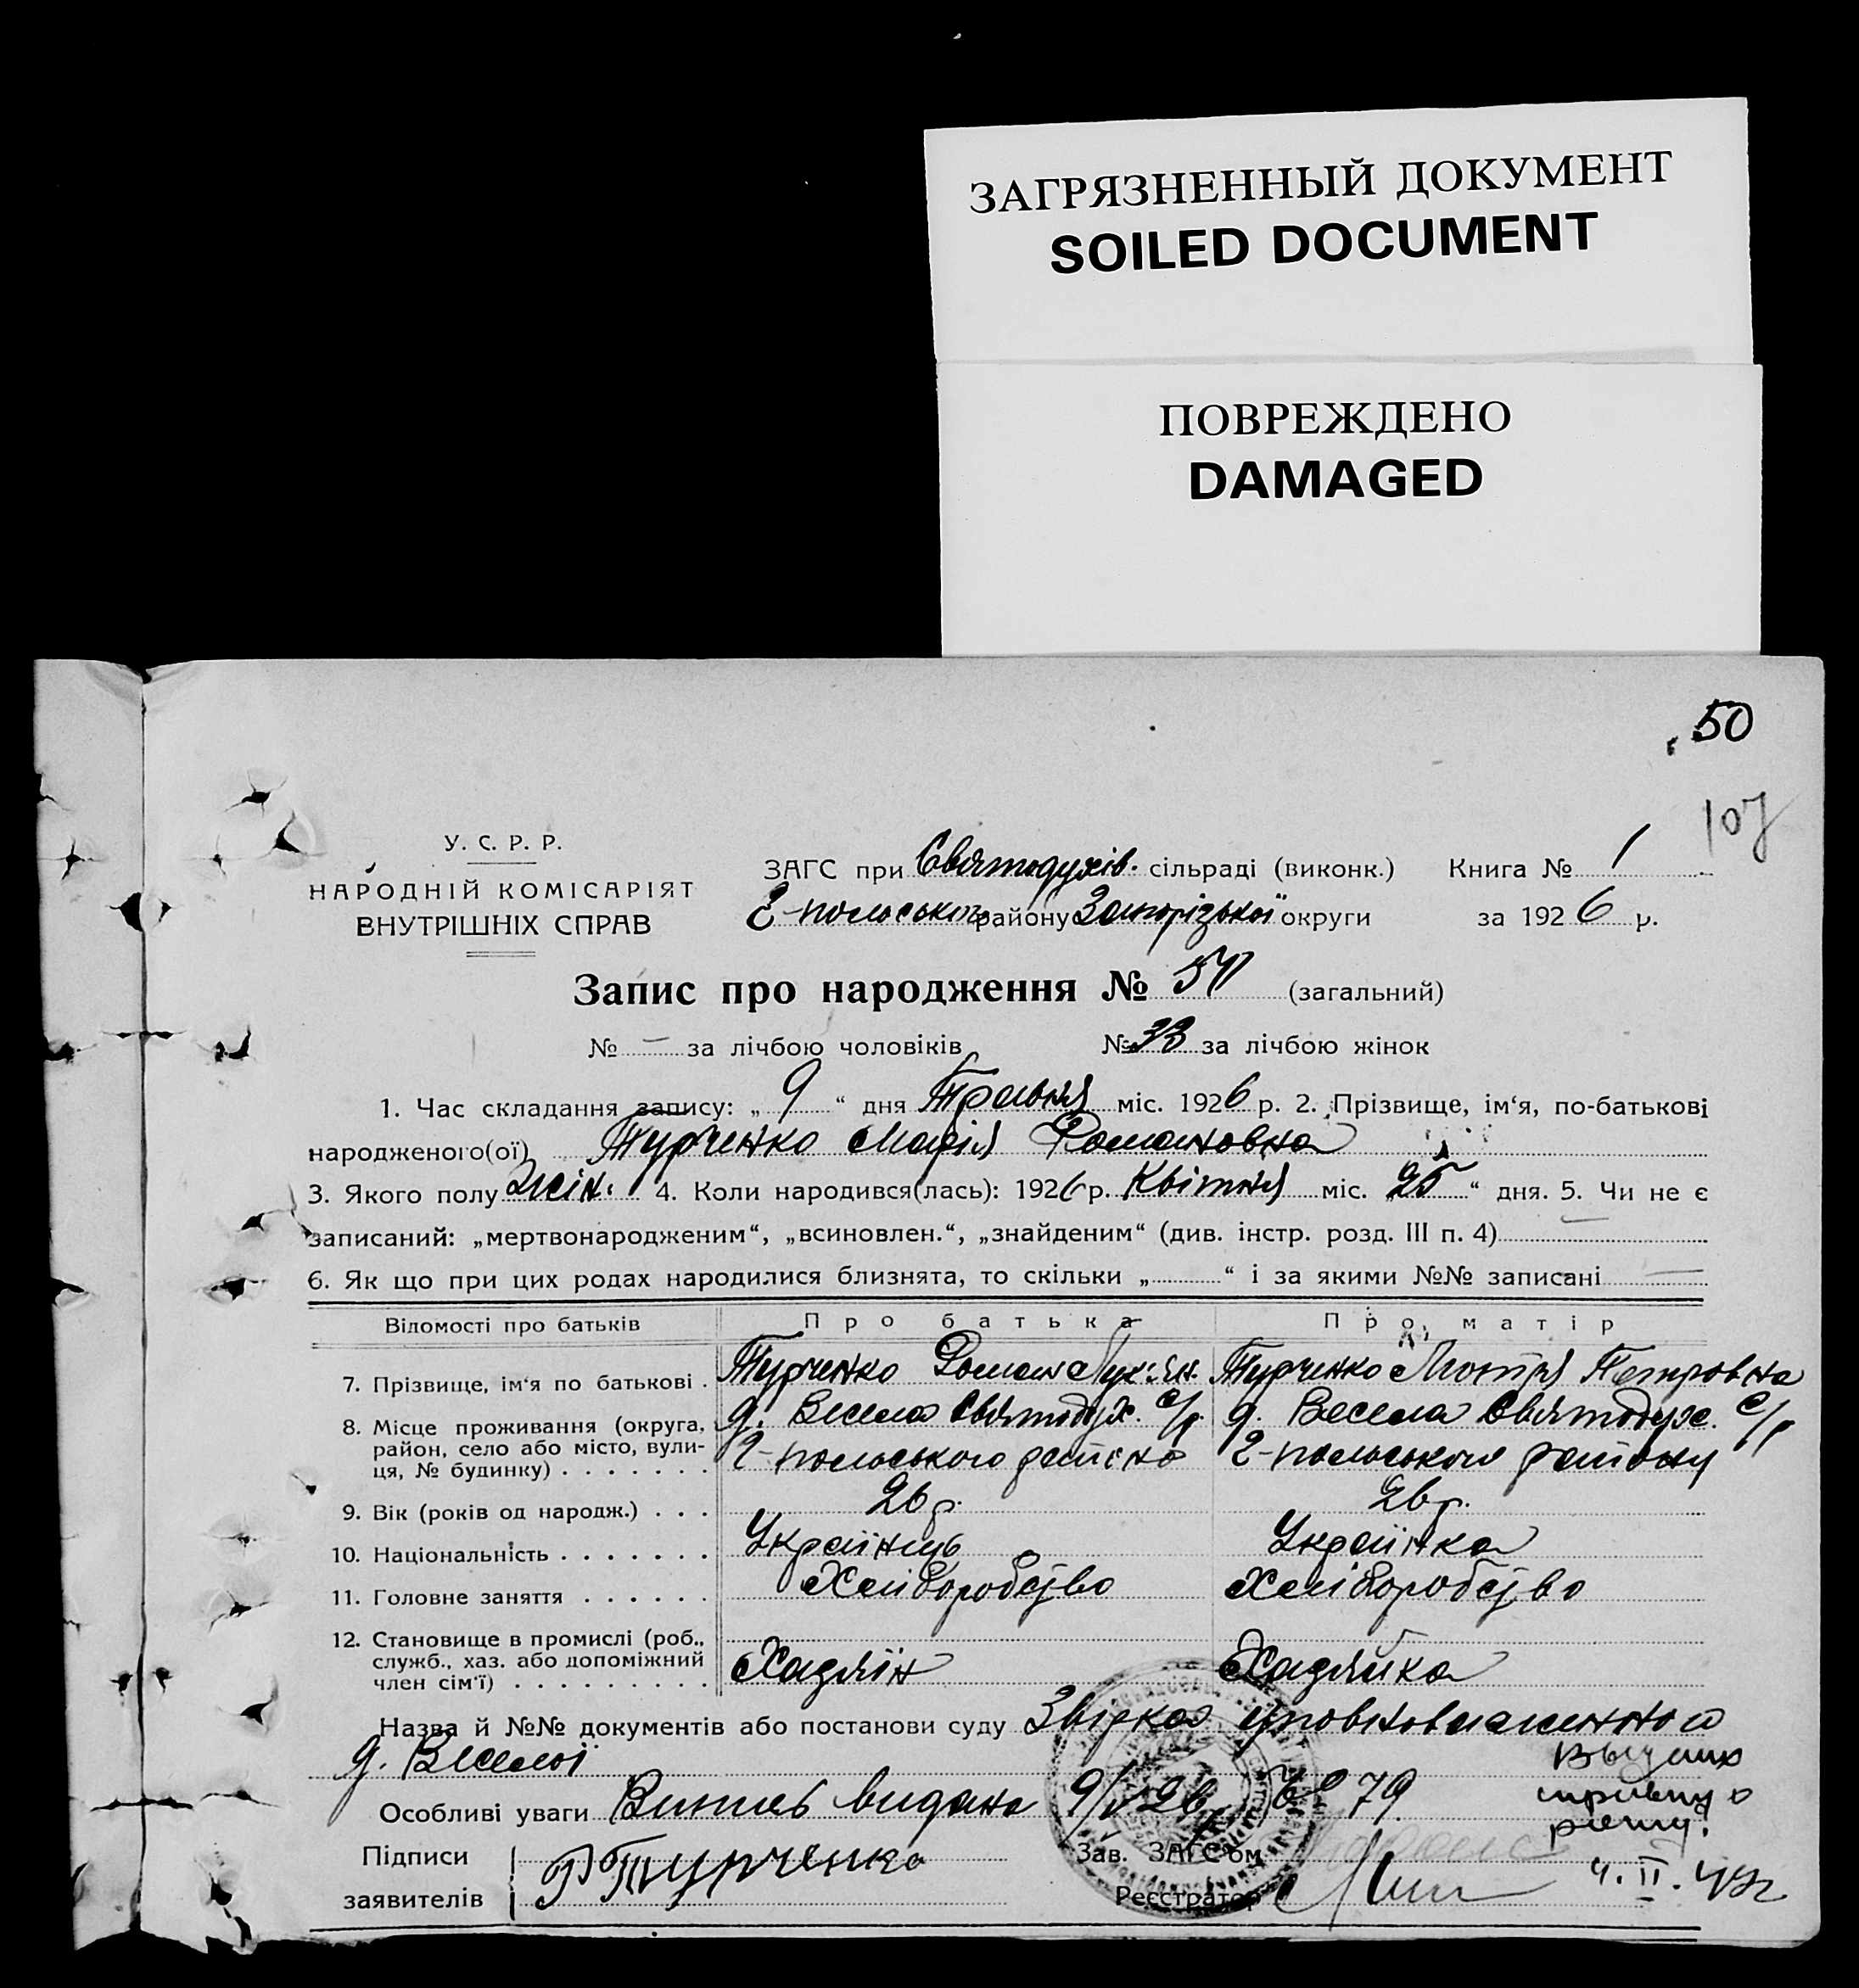 ЗАГРЯЗНЕННЫЙ ДОКУМЕНТ
SOILED DOCUMENT
ПОВРЕЖДЕНО
DAMAGED
50
107
У. С. Р. Р.
НАРОДНІЙ КОМІСАРІЯТ
ВНУТРІШНІХ СПРАВ
ЗАГС при Святодухів. сільраді (виконк.) Книга № 1
Г-польського району Запорізької округи за 1926 р.
Запис про народження № (загальний)
№ — за лічбою чоловіків № 33 за лічбою жінок
1. Час складання запису: „ 9 “ дня Травня міс. 1926 р. 2. Прізвище, ім‘я, по-батькові
народженого(ої) Турченко Марія Романовна
3. Якого полу жін. 4. Коли народився(лась): 1926 р. Квітня міс. „ 25 “ дня. 5. Чи не є
записаний: „мертвонародженим“, „всиновлен.“, „знайденим“ (див. інстр. розд. III п. 4) —
6. Як що при цих родах народилися близнята, то скільки „ “ і за якими №№ записані —
Відомості про батьків Про батька Про матір
7. Прізвище, ім‘я по батькові . Турченко Роман Лук‘ян. Турченко Мотря Петровна
8. Місце проживання (округа, д. Весела Святодух. с/р. д. Весела Святодух. с/р
район, село або місто, вули- Г-польського району Г-польського району
ця, № будинку) . . . . . . .
9. Вік (років од народж.) . . . 26 р. 26 р.
10. Національність . . . . . . . Українець Українка
11. Головне заняття . . . . . . Хліборобство Хліборобство
12. Становище в промислі (роб.,
служб., хаз. або допоміжний Хадзяїн Хадзяйка
член сім‘ї) . . . . . . . . .
Назва й №№ документів або постанови суду Звірка уповноваженного
д. Веселої
Особливі уваги Витяг видано 9/V 26 № 79
Підписи
заявителів Р Турченко
Зав. ЗАГС‘ом
Реєстратор
4. II. 47г